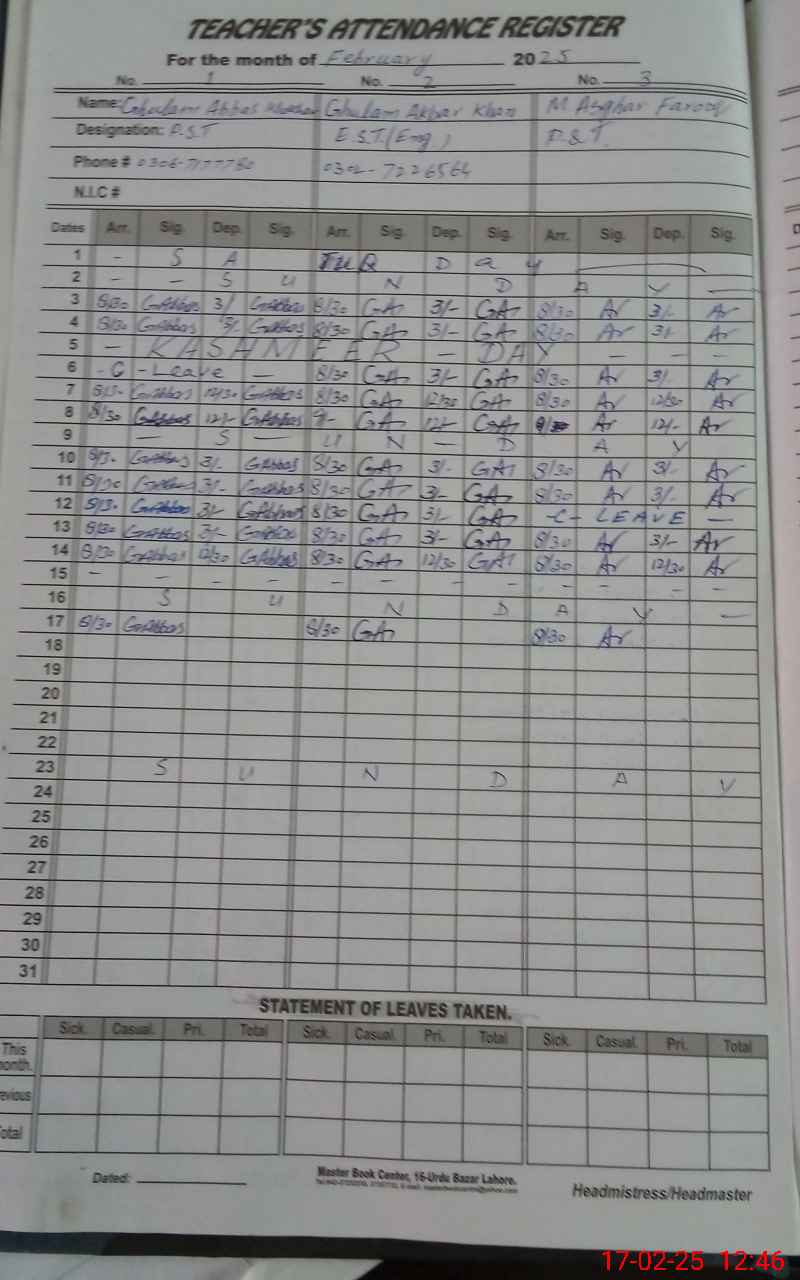 TEACHER'S ATTENDANCE REGISTER
For the month of February 2025
No. 1 No. 2 No. 3
Name: Ghulam Abbas Ghulam Akbar Khan M. Asghar Farooq
Designation: P.S.T E.S.T.(Eng.) P.S.T.
Phone # 0302-7226564
N.I.C #
Dates Arr. Sig. Dep. Sig. Arr. Sig. Dep. Sig. Arr. Sig. Dep. Sig.
1 - S A TUR D a y
2 - - S U N D A Y -
3 8/30 GAbbas 3/ GAbbas 8/30 GA 3/- GA 8/30 Ar 3/- Ar
4 8/30 GAbbas 3/- GAbbas 8/30 GA 3/- GA 8/30 Ar 3/- Ar
5 - KASHMEER - DAY - - -
6 - C - Leave - 8/30 GA 3/- GA 8/30 Ar 3/- Ar
7 8/30 GAbbas 12/30 GAbbas 8/30 GA 12/30 GA 8/30 Ar 12/30 Ar
8 8/30 GAbbas 12/- GAbbas 9/- GA 12/- GA Ar 12/- Ar
9 - S - U N - D A Y
10 8/30 GAbbas 3/- GAbbas 8/30 GA 3/- GA 8/30 Ar 3/- Ar
11 8/30 GAbbas 3/- GAbbas 8/30 GA 3/- GA 8/30 Ar 3/- Ar
12 8/30 GAbbas 3/- GAbbas 8/30 GA 3/- GA -C- LEAVE -
13 8/30 GAbbas 3/- GAbbas 8/30 GA 3/- GA 8/30 Ar 3/- Ar
14 8/30 GAbbas 12/30 GAbbas 8/30 GA 12/30 GA 8/30 Ar 12/30 Ar
15 - - - - - - - - - - - -
16 S U N D A Y -
17 8/30 GAbbas 8/30 GA 8/30 Ar
18
19
20
21
22
23 S U N D A Y
24
25
26
27
28
29
30
31
STATEMENT OF LEAVES TAKEN.
Sick. Casual. Pri. Total Sick. Casual. Pri. Total Sick. Casual. Pri. Total
This
onth.
evious
otal
Dated:
Master Book Center, 16-Urdu Bazar Lahore.
Headmistress/Headmaster
17-02-25 12:46